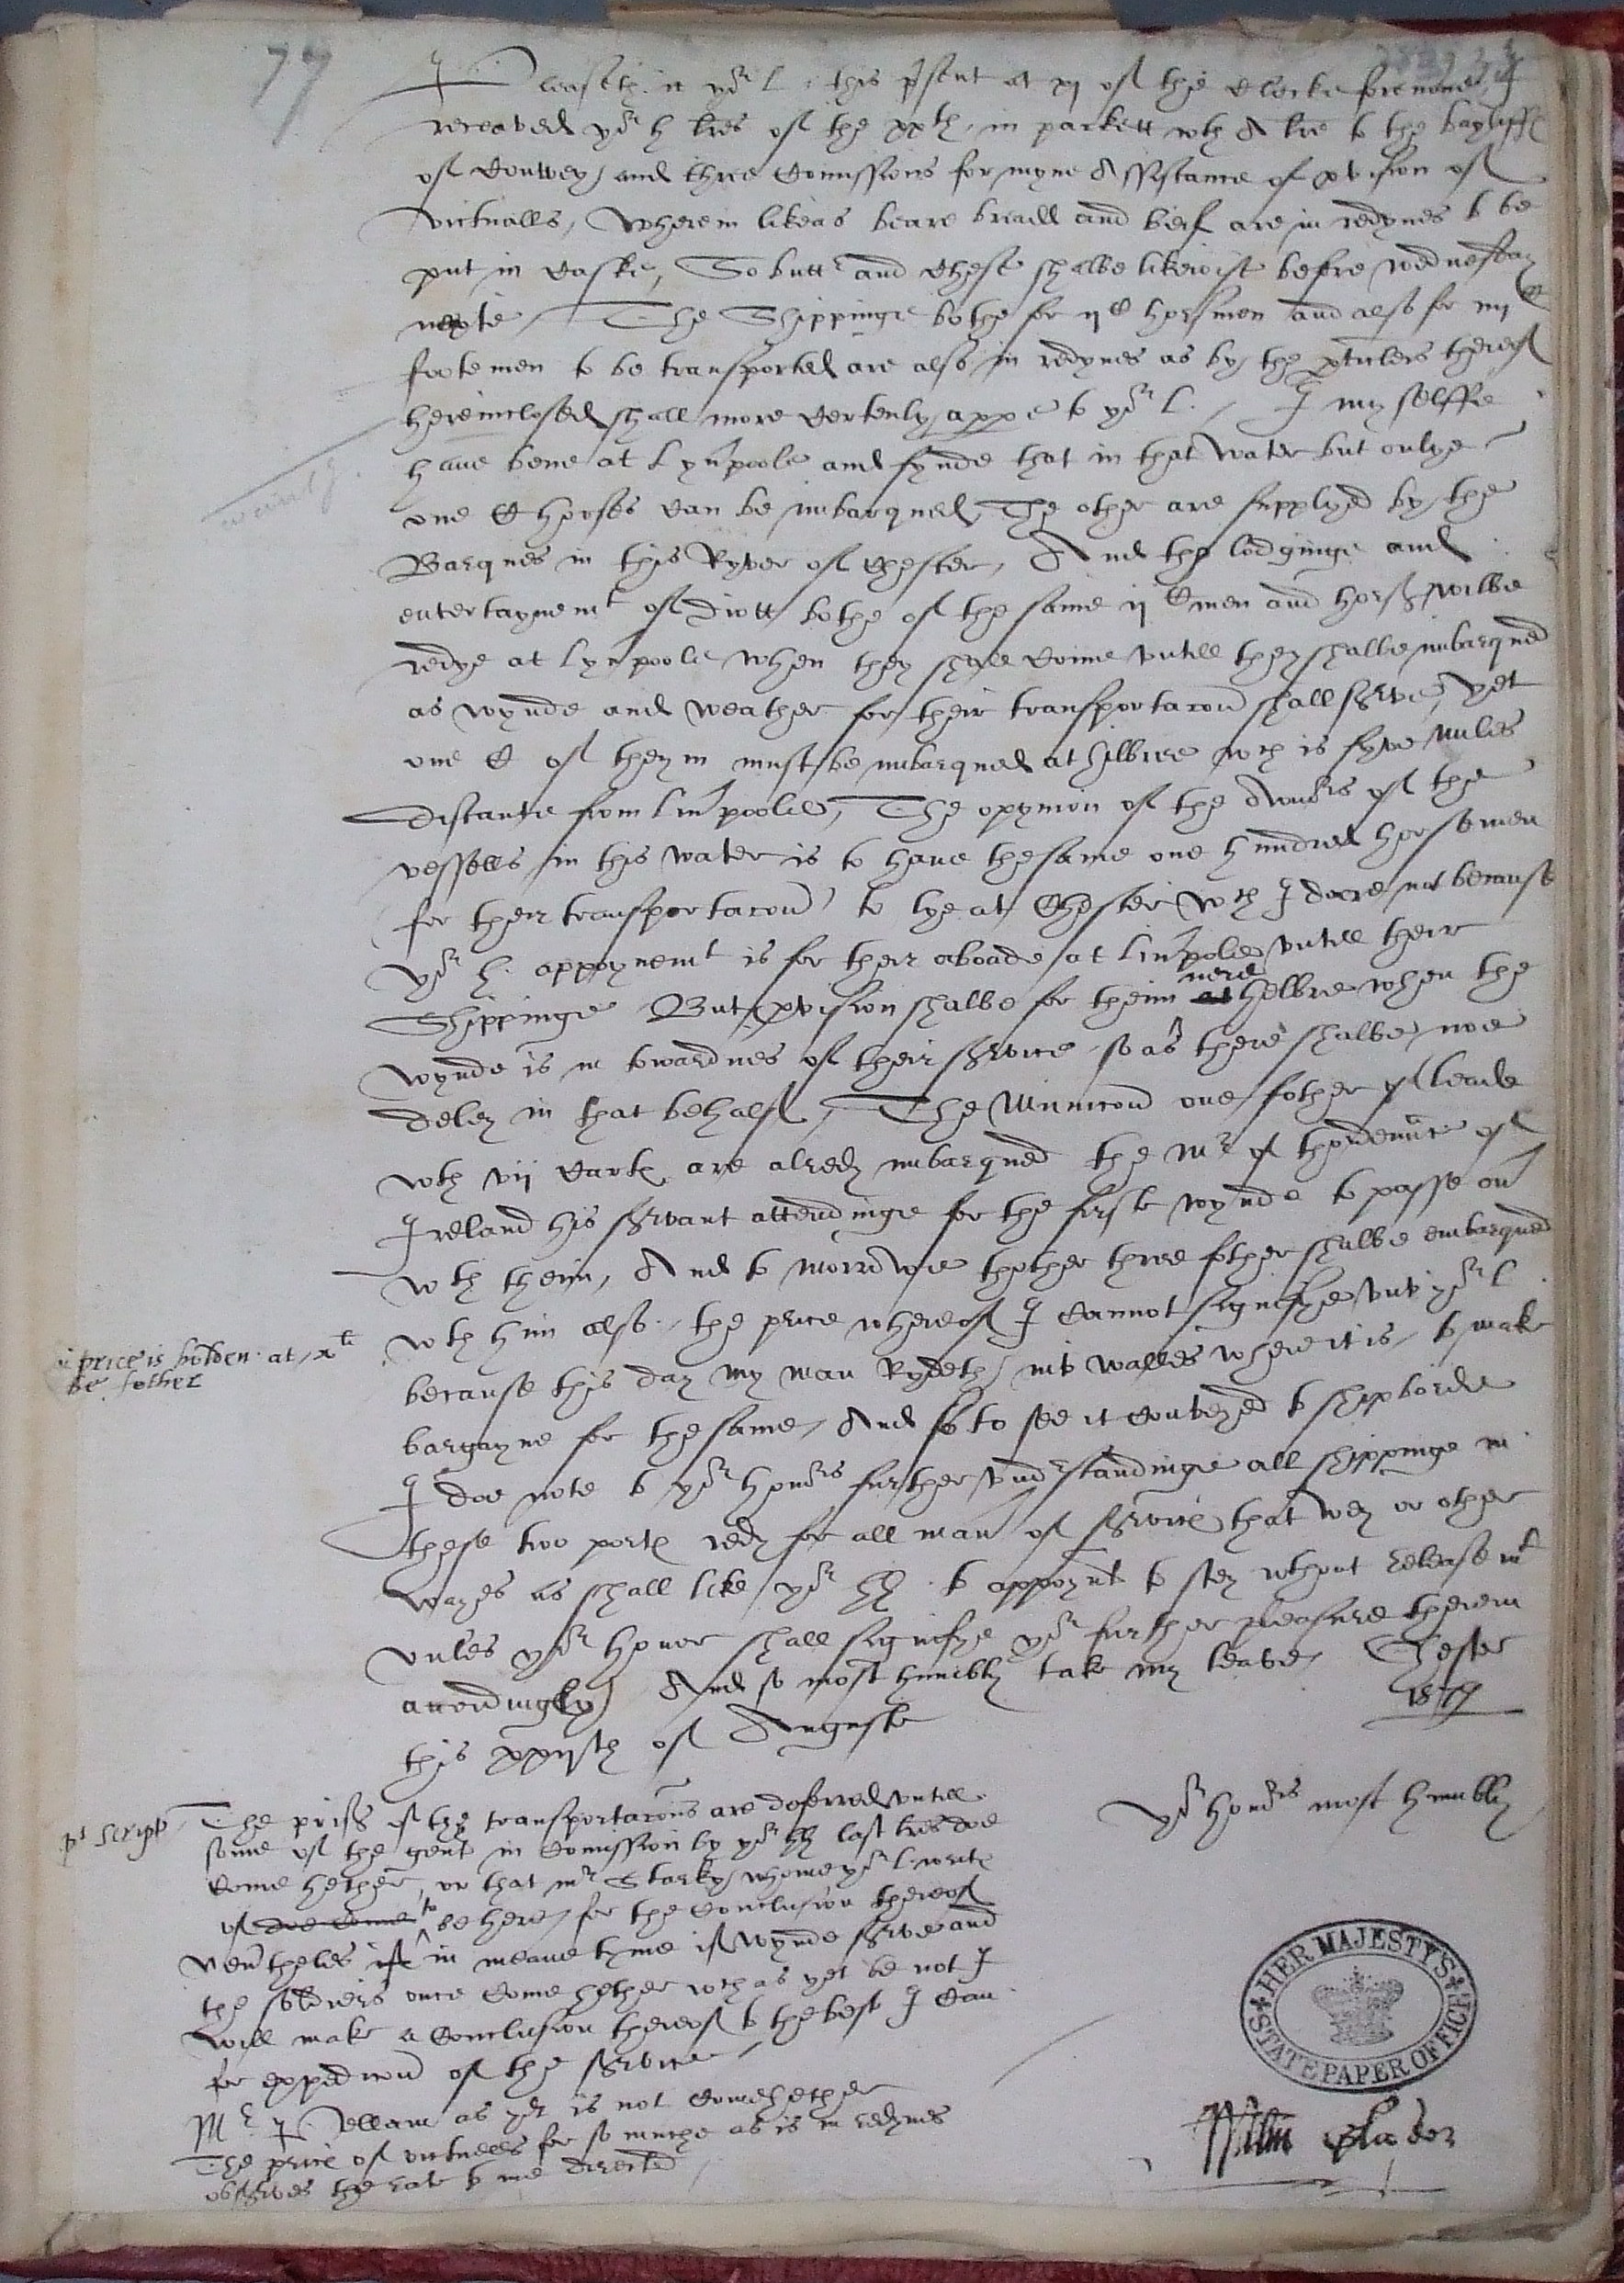 77
Pleaseth it yor L. this pñt at xj of the Clocke forenone I
receaved yor h lres of the xxth in packett wth A lre to the bayliff
of Conwey and three Comissions for myne Assistance of pvision of
victualls, Wherein likeas beare breadd and beif are in redynes to be
put in Caske, So buttr and Chese shalbe likewise before wednesday
nexte The Shippinge bothe for ijC horsmen and also for iiijC
foote men to be transported are also in redynes as by the pticlers thereof
hereinclosed shall more Certenly appe to yor L. I my selffe
have bene at Lyrpoole and fynde that in that water but onlye
one C horses can be imbarqued The other are supplyed by the
Barques in this Ryver of Chester, And the lodginge and
entertaynemt of Diott bothe of the same ij C men and horss wilbe
redye at Lyrpoole when they shall Come untill they shalbe imbarqued
as wynde and weather for their transportacon shall serve, yet
one C of theym must be imbarqued at hilbree wch is fyve miles
Distante from Lirpoole, The opynion of the Awners of the
vessells in this water is to have the same one hundred horsemen
for their transportacon to lye at Chester wch I dare not because
yor h. appoynemt is for their aboade at Lirpole untill their
Shippinge But pvision shalbe for theim at nere helbre when the
wynde is in towardnes of their service so as there shalbe noe
Deley in that behalf, The Municon one fother of leade
wth vij Carts are alredy imbarqued the Mr of thordenñce of
Ireland his servant attendinge for the firste wynde to passe on
wth theim, And to morrowe thother three fother shalbe embarqued
wth him also. the price whereof I Cannot signifye unto yor L
price is holden at xli
the fother
because this day my man Rydeth into Walles where it is to make
bargayne for the same, And so to see it Conveyed to shipborde
I doe note to yor honors further undrstandinge all shippinge in
these two ports redy for all manr of service that wey or other
wayes as shall like yor hh to appoynt to stey wthout releasemt
unles yor honor shall signifye yor further pleasure therein
accordingly And so most humbly take my leave, Chester
this xxijth of Auguste
Yor honors most humbly
pt script The priss of the transportacons are deferred untill
some of the gent in Comission by yor hh last lres doe
Come hether, or that mr Starky whome yor l. write
of doe Come to be here for the Conclusion thereof
nevrtheles if in meane tyme if wynde serve and
the soldiers once Come hether wch as yet be not I
will make a Conclusion thereof to the best I Can
for expedicon of the service
as yet is not Come hether
The price of victuells for so muche as is in redynes
observes the rate to me directed
HER MAJESTY'S STATE PAPER OFFICE
Willm Glasior